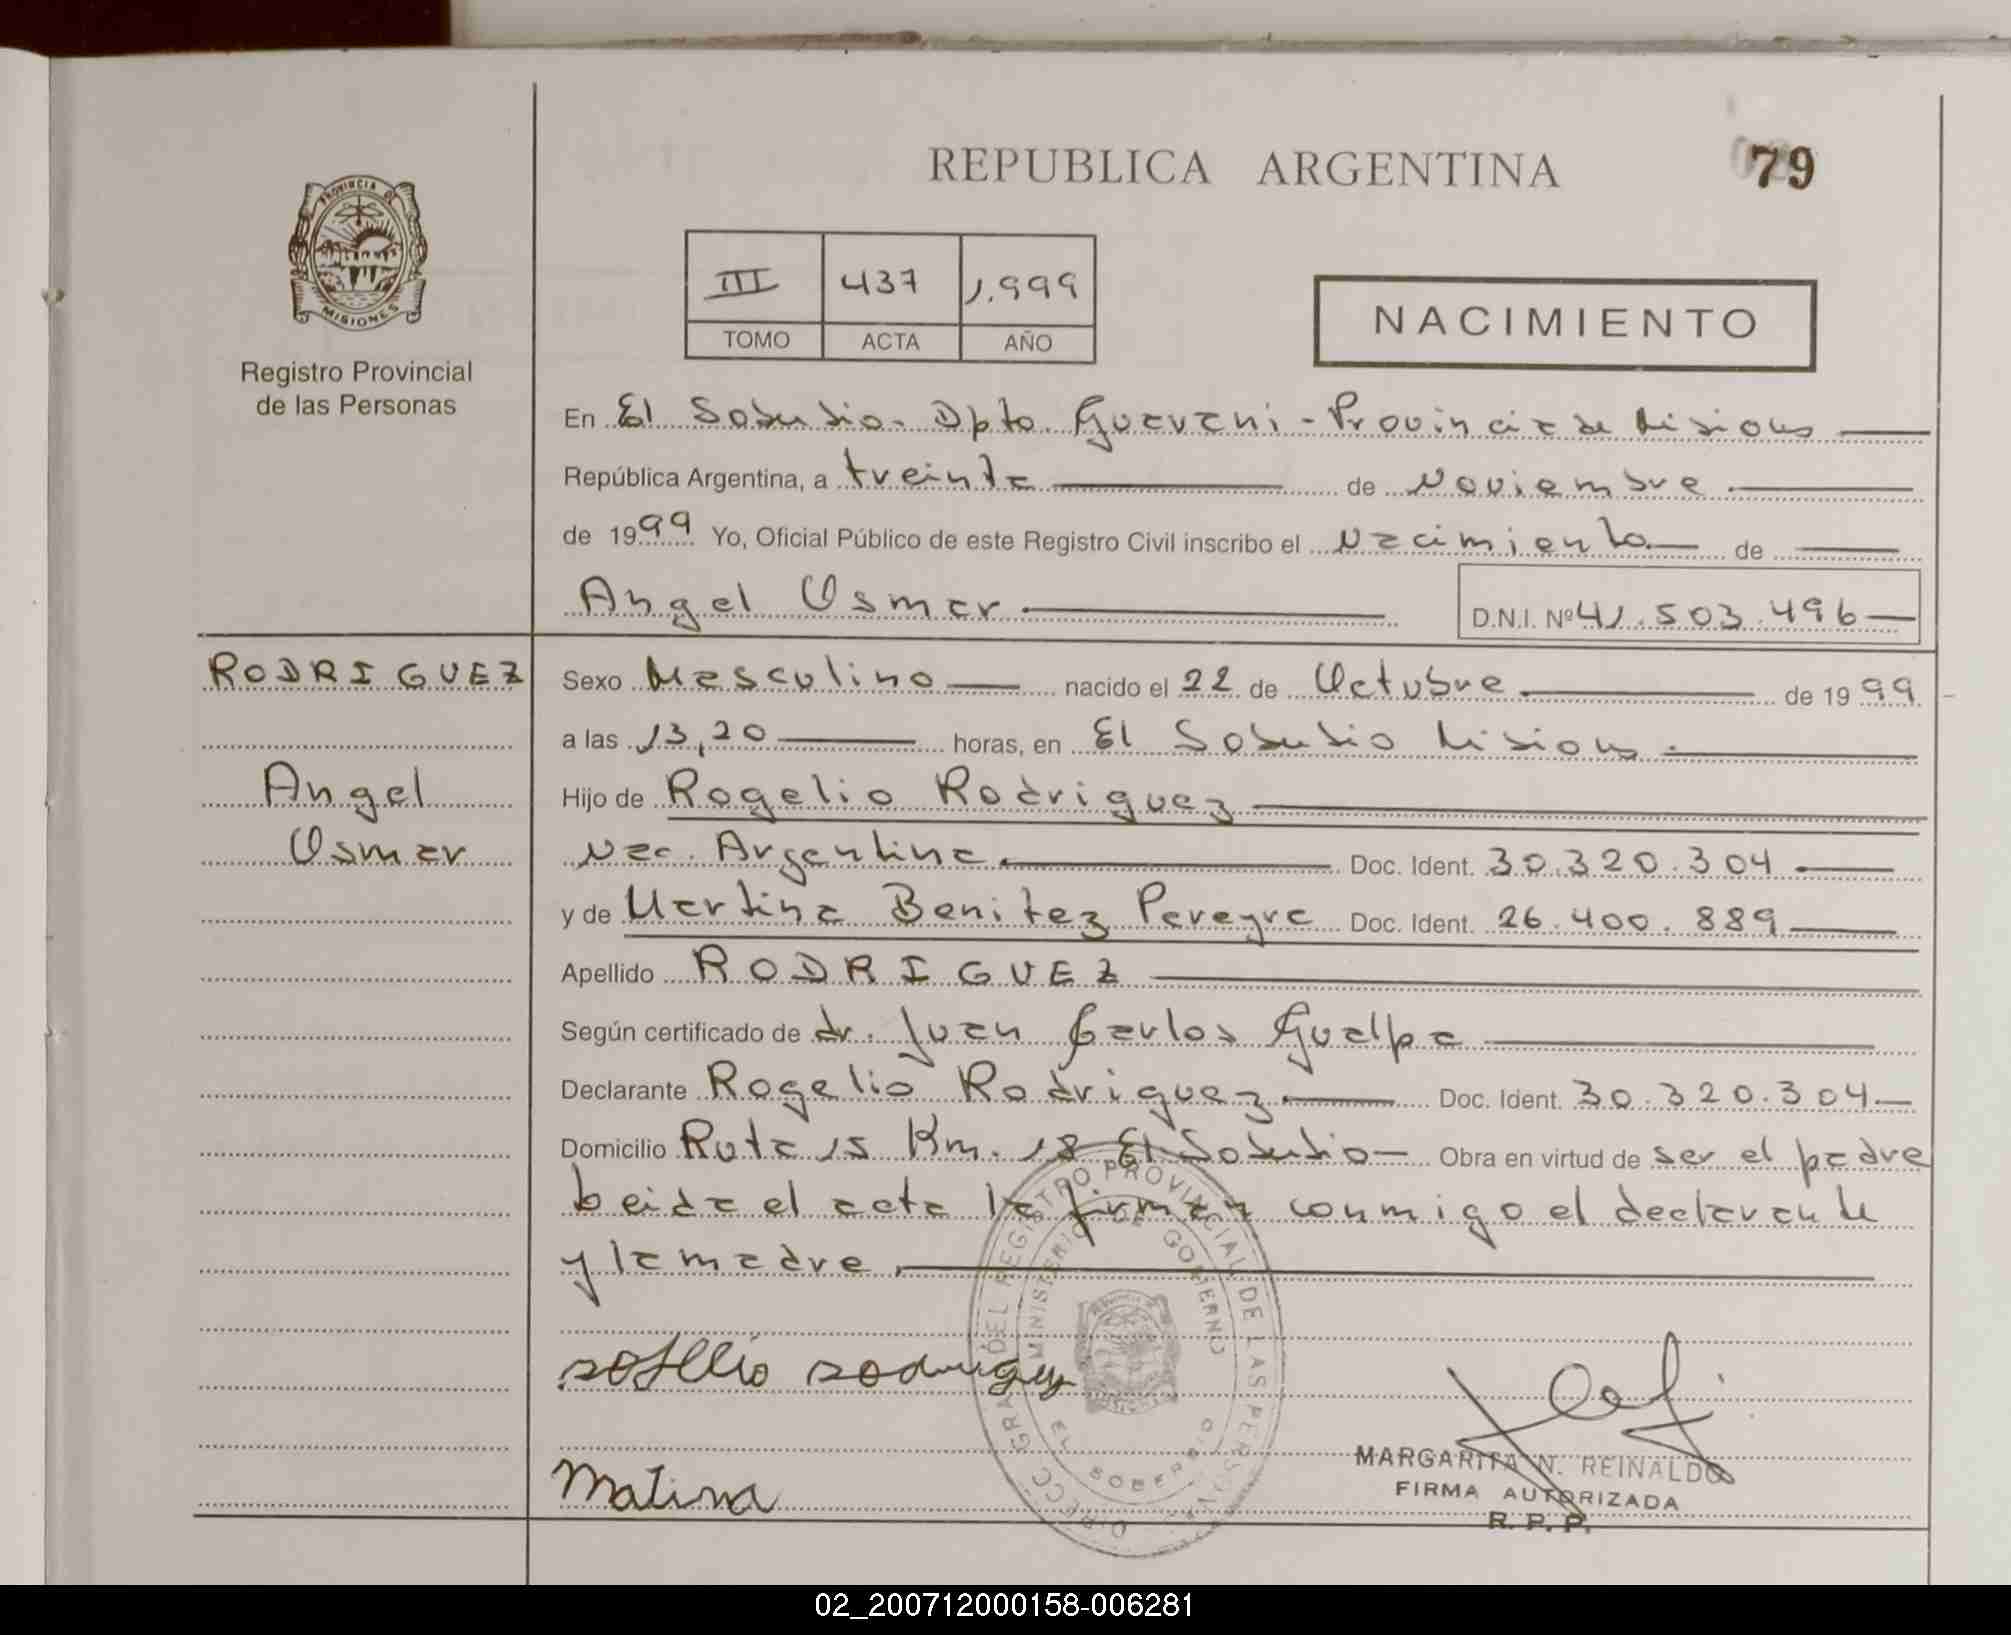 REPUBLICA ARGENTINA
79
PROVINCIA DE
MISIONES
Registro Provincial
de las Personas
III 437 1.999
TOMO ACTA AÑO
NACIMIENTO
En El Soberbio. Dpto. Guarani - Provincia de Misiones
República Argentina, a treinta de Noviembre
de 1999 Yo, Oficial Público de este Registro Civil inscribo el Nacimiento de
Angel Osmar D.N.I. Nº 41.503.496
RODRIGUEZ
Angel
Osmar
Sexo Masculino nacido el 22 de Octubre de 1999
a las 13,20 horas, en El Soberbio Misiones
Hijo de Rogelio Rodriguez
Nac. Argentina. Doc. Ident. 30.320.304
y de Martina Benitez Pereyra Doc. Ident. 26.400.889
Apellido RODRIGUEZ
Según certificado de dr. Juan Carlos Gualpa
Declarante Rogelio Rodriguez Doc. Ident. 30.320.304
Domicilio Ruta 15 Km. 18 El Soberbio Obra en virtud de ser el padre
Leida el acta la firman conmigo el declarante
y la madre.
DIRECC. GRAL. DEL REGISTRO PROVINCIAL DE LAS PERSONAS
MINISTERIO DE GOBIERNO
EL SOBERBIO
Matina
MARGARITA N. REINALDO
FIRMA AUTORIZADA
R. P. P.
02_200712000158-006281